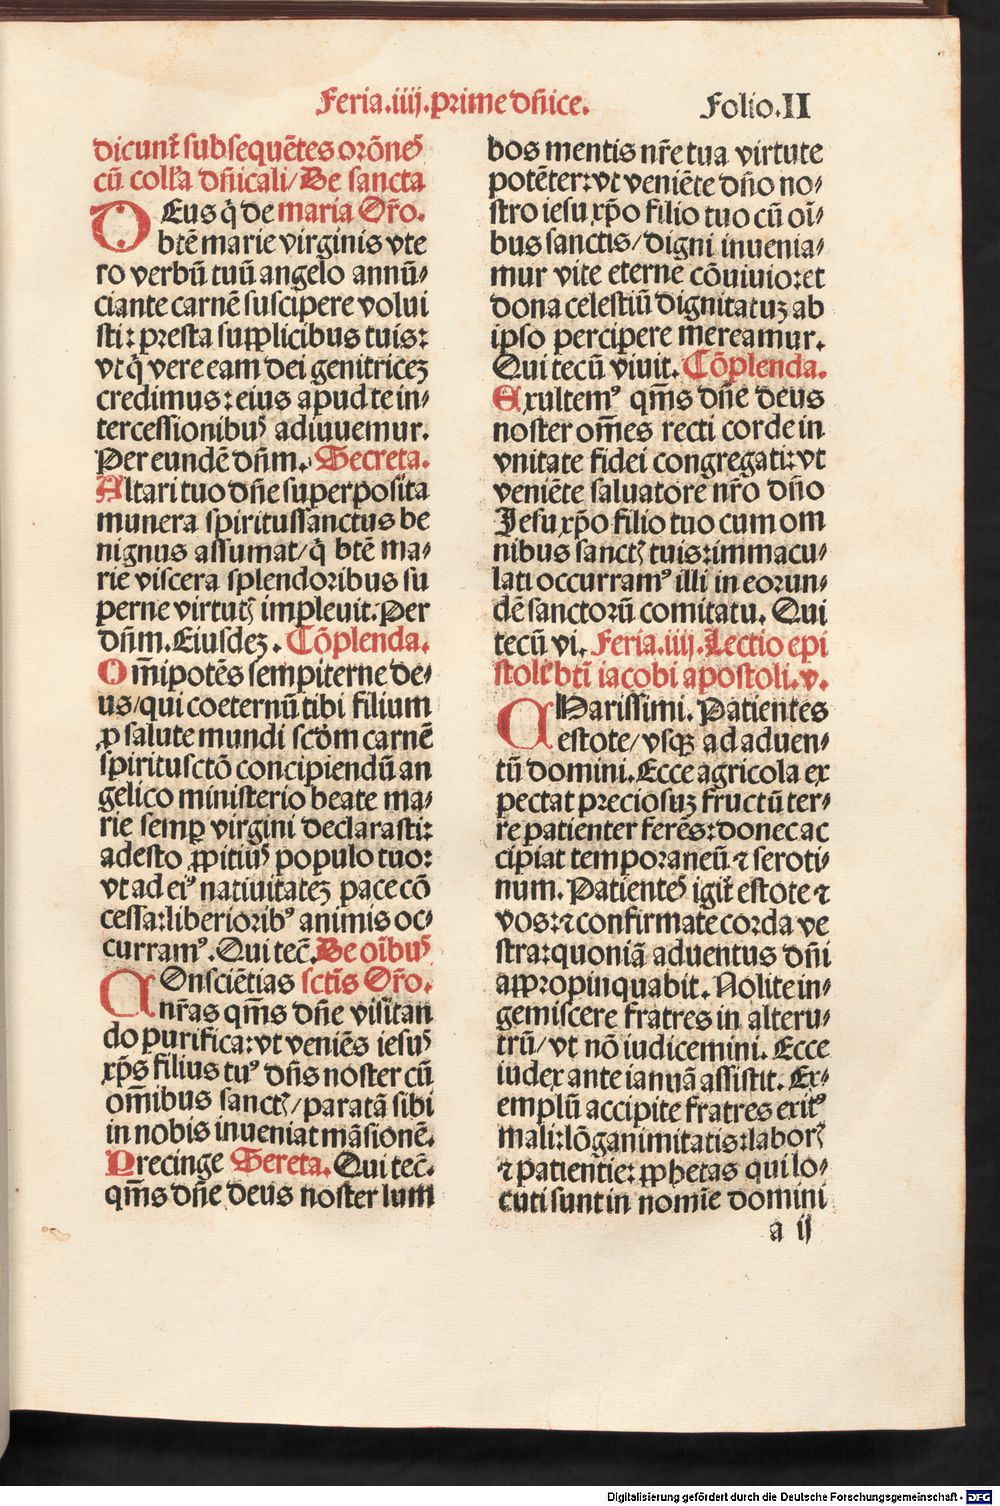 Feria.iiij.prime dñice.
Folio.II
dicunt̃ subsequẽtes orõneꝰ
cũ coll'a dñicali/De sancta
DEus q̃ de maria Or̃o.
btẽ marie virginis vte
ro verbũ tuũ angelo annũ⸗
ciante carnẽ suscipere volui
sti: presta supplicibus tuis:
vt q̃ vere eam dei genitricez
credimus: eius apud te in⸗
tercessionibuꝰ adiuuemur.
Per eundẽ dñm. Secreta.
Altari tuo dñe superposita
munera spiritussanctus be
nignus assumat/q̃ btẽ ma⸗
rie viscera splendoribus su
perne virtutꝭ impleuit.Per
dñm.Eiusdez. Cõplenda.
Om̃ipotẽs sempiterne de⸗
us/qui coeternũ tibi filium
ꝓ salute mundi scd̃m carnẽ
spiritusctõ concipiendũ an
gelico ministerio beate ma⸗
rie semꝑ virgini declarasti:
adesto ꝓpitiuꝰ populo tuo:
vt ad eiꝰ natiuitatez pace cõ
cessa: liberioribꝰ animis oc⸗
curramꝰ. Qui tec̃. De oĩbuꝰ
COnsciẽtias sctĩs Or̃o.
nr̃as qm̃s dñe visitan
do purifica: vt veniẽs iesuꝰ
xp̃s filius tuꝰ dñs noster cũ
om̃ibus sanctꝭ/paratã sibi
in nobis inueniat mãsionẽ.
Precinge Sereta. Qui tec̃.
qm̃s dñe deus noster lum
bos mentis nr̃e tua virtute
potẽter: vt veniẽte dño no⸗
stro iesu xp̃o filio tuo cũ oĩ⸗
bus sanctis/digni inuenia⸗
mur vite eterne cõuiuio: et
dona celestiũ dignitatuz ab
ipso percipere mereamur.
Qui tecũ viuit. Cõplenda.
Exultemꝰ qm̃s dñe deus
noster om̃es recti corde in
vnitate fidei congregati: vt
veniẽte saluatore nr̃o dño
Jesu xp̃o filio tuo cum om
nibus sanctꝭ tuis: immacu⸗
lati occurramꝰ illi in eorun⸗
dẽ sanctorũ comitatu. Qui
tecũ vi. Feria.iiij.Lectio epi
stole bt̃i iacobi apostoli.v.
CHarissimi. Patientes
estote/vsqꝫ ad aduen⸗
tũ domini.Ecce agricola ex
pectat preciosuz fructũ ter⸗
re patienter ferẽs: donec ac
cipiat temporaneũ ⁊ seroti⸗
num. Patienteꝰ igit̃ estote ⁊
vos: ⁊ confirmate corda ve
stra: quoniã aduentus dñi
appropinquabit. Nolite in⸗
gemiscere fratres in alteru⸗
trũ/vt nõ iudicemini. Ecce
iudex ante ianuã assistit. Ex⸗
emplũ accipite fratres exitꝰ
mali: lõganimitatis: laborꝭ
⁊ patientie: ꝓphetas qui lo⸗
cuti sunt in nomĩe domini
a ij
Digitalisierung gefördert durch die Deutsche Forschungsgemeinschaft - DFG